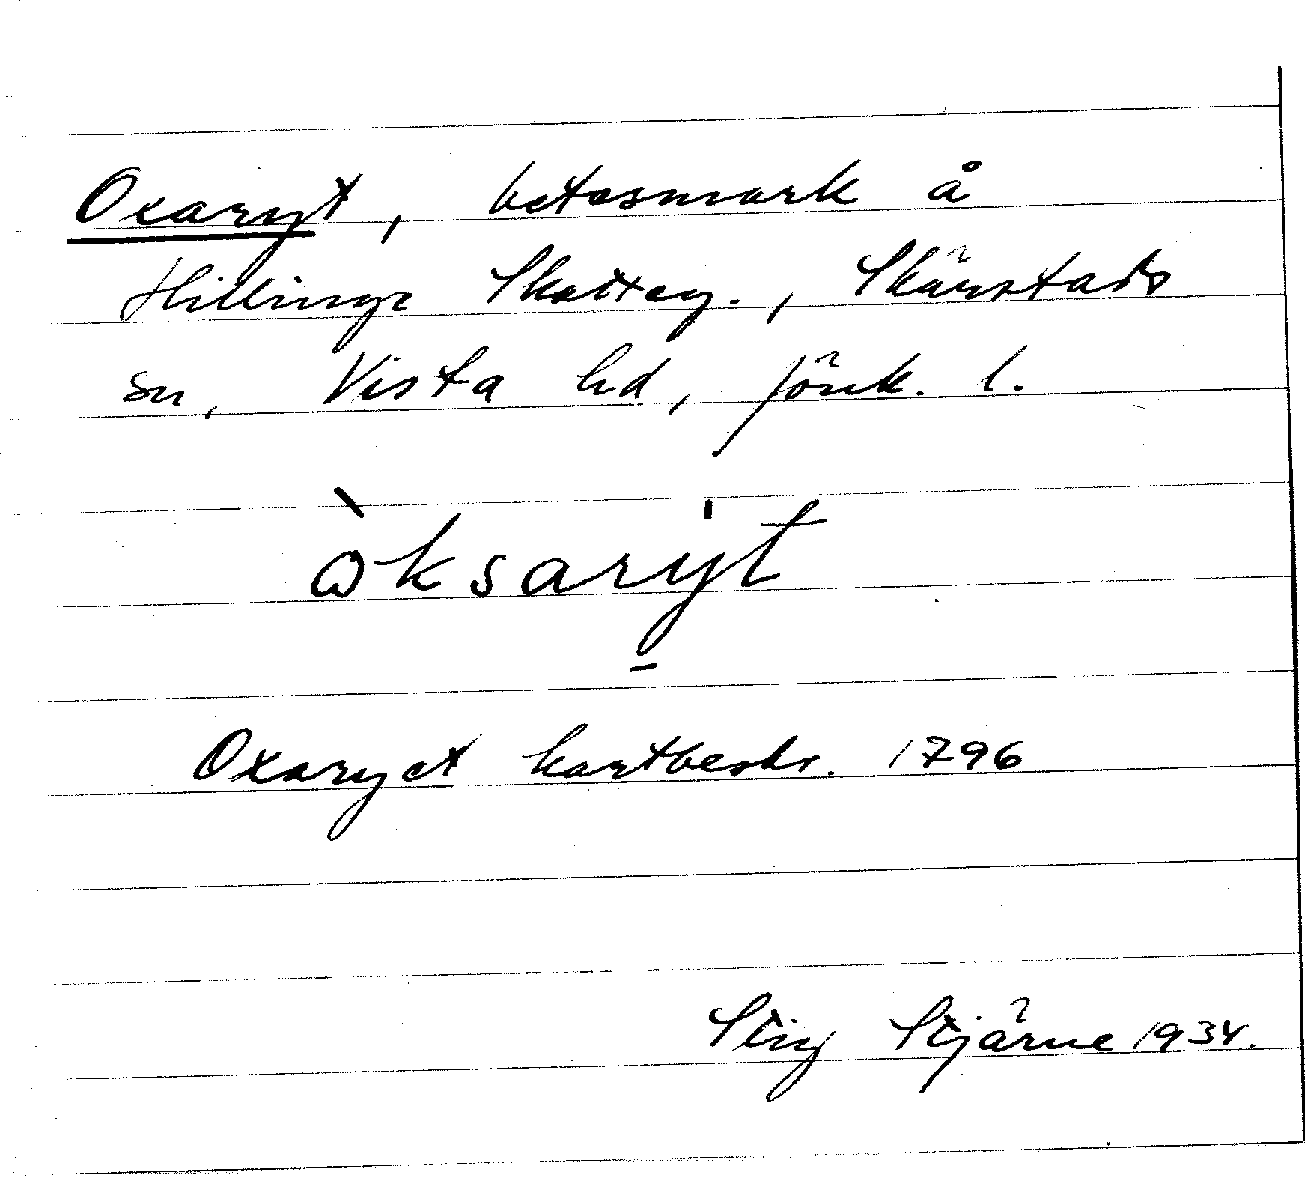 Oxaryt, betesmark å
Hillinge Skatteg., Skärstads
sn, Vista hd, Jönk. l.
ὼksarýt
Oxaryet kartbeskr. 1796
Stig Stjärne 1934.